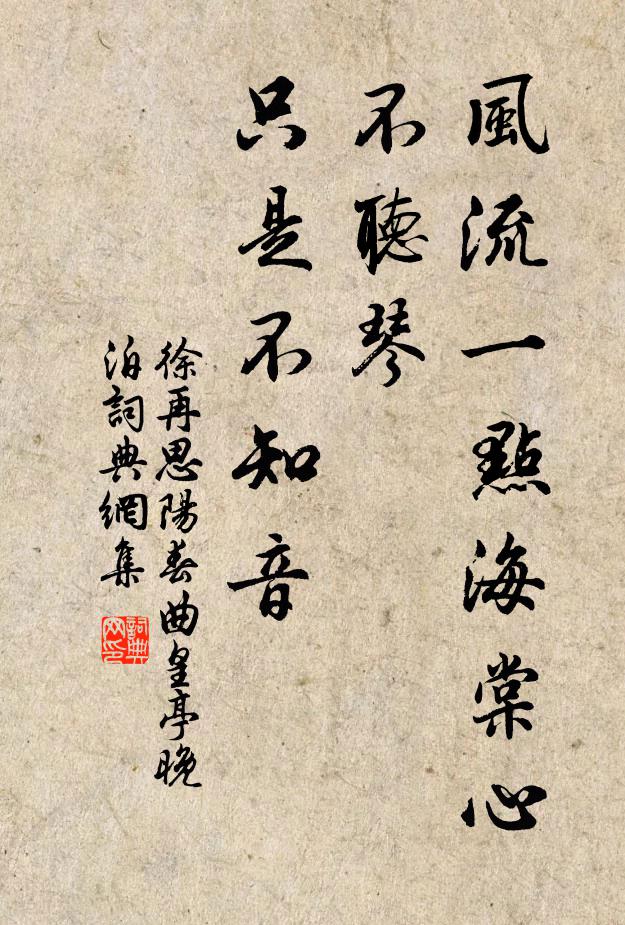 風流一點海棠心
不聽琴
只是不知音
徐再思陽春曲皇亭晚
泊詞典網集
詞典网印